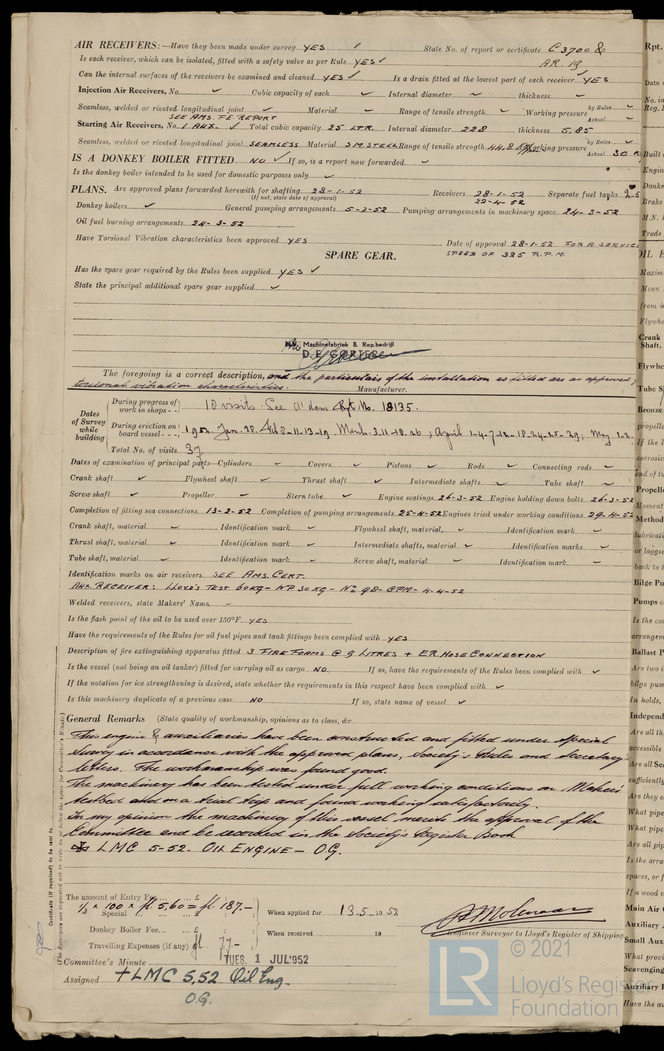 AIR RECEIVERS:—Have they been made under survey YES ✓ State No. of report or certificate C 3700 &
Is each receiver, which can be isolated, fitted with a safety valve as per Rule YES ✓ AR 19
Can the internal surfaces of the receivers be examined and cleaned YES ✓ Is a drain fitted at the lowest part of each receiver YES
Injection Air Receivers, No. ✓ Cubic capacity of each ✓ Internal diameter ~ thickness ✓
Seamless, welded or riveted longitudinal joint ✓ Material ✓ Range of tensile strength ✓ Working pressure by Rules ✓ Actual ✓
SEE AMS F.E REPORT
Starting Air Receivers, No. 1 AUX. ✓ Total cubic capacity 25 LTR. Internal diameter 228 thickness 5.85
Seamless, welded or riveted longitudinal joint SEAMLESS Material S.M. STEEL Range of tensile strength 44.8 Working pressure by Rules ✓ Actual 30
IS A DONKEY BOILER FITTED NO ✓ If so, is a report now forwarded ✓
Is the donkey boiler intended to be used for domestic purposes only ✓
PLANS. Are approved plans forwarded herewith for shafting 28-1-52 Receivers 28-1-52 Separate fuel tanks
(If not, state date of approval) 22-4-52
Donkey boilers ✓ General pumping arrangements 5-2-52 Pumping arrangements in machinery space 24-3-52
Oil fuel burning arrangements 24-3-52
Have Torsional Vibration characteristics been approved YES Date of approval 28-1-52 FOR A SERVICE
SPEED OF 325 R.P.M.
SPARE GEAR.
Has the spare gear required by the Rules been supplied YES ✓
State the principal additional spare gear supplied ✓
Machinefabriek & Rep.bedrijf
The foregoing is a correct description, and the particulars of the installation as fitted are as approved,
torsional vibration characteristics. Manufacturer.
Dates of Survey while building
During progress of work in shops - - 10 visits. See A'dam Rpt. No. 18135.
During erection on board vessel - - - 1952. Jan. 28. Feb 8-11-13-19. March 3.11-18-26; April 1-4-7-12-18-24-25-29; May 1-2;
Total No. of visits 37
Dates of examination of principal parts—Cylinders ✓ Covers ✓ Pistons ✓ Rods ✓ Connecting rods ✓
Crank shaft ✓ Flywheel shaft ✓ Thrust shaft ✓ Intermediate shafts ✓ Tube shaft ✓
Screw shaft ✓ Propeller ✓ Stern tube ✓ Engine seatings 26-3-52 Engine holding down bolts 26-3-52
Completion of fitting sea connections 13-2-52 Completion of pumping arrangements 25-4-52 Engines tried under working conditions 29-4-52
Crank shaft, material ✓ Identification mark ✓ Flywheel shaft, material, ✓ Identification mark ✓
Thrust shaft, material ✓ Identification mark ✓ Intermediate shafts, material ✓ Identification marks ✓
Tube shaft, material ✓ Identification mark ✓ Screw shaft, material ✓ Identification mark ✓
Identification marks on air receivers SEE AMS. CERT.
AUX RECEIVER: LLOYD'S TEST 60KG - WP 30KG - No. 98 - - 4-4-52
Welded receivers, state Makers' Name ✓
Is the flash point of the oil to be used over 150°F. YES
Have the requirements of the Rules for oil fuel pipes and tank fittings been complied with YES
Description of fire extinguishing apparatus fitted 3 FIREFOAMS @ 9 LITRES + E.R. HOSE CONNECTION
Is the vessel (not being an oil tanker) fitted for carrying oil as cargo NO If so, have the requirements of the Rules been complied with ✓
If the notation for ice strengthening is desired, state whether the requirements in this respect have been complied with ✓
Is this machinery duplicate of a previous case NO If so, state name of vessel ✓
General Remarks (State quality of workmanship, opinions as to class, &c.
This engine & auxiliaries have been constructed and fitted under special
survey in accordance with the approved plans, Society's Rules and Secretary's
letters. The workmanship was found good.
The machinery has been tested under full working conditions on Makers'
testbed and on a trial trip and found working satisfactorily.
In my opinion the machinery of this vessel merits the approval of the
Committee and be recorded in the Society's Register Book
LMC 5-52. OIL ENGINE - O.G.
The amount of Entry Fee .. £
1/3 x 100 x fl 5,60 = fl. 187.-
Special £ When applied for 13.5.1952
Donkey Boiler Fee... £
Travelling Expenses (if any) fl 77- When received 19
Engineer Surveyor to Lloyd's Register of Shipping
Committee's Minute TUES. 1 JUL 1952
Assigned +LMC 5,52 Oil Eng.
O.G.
Certificate (if required) to be sent to
(The Surveyors are requested not to write on or below the space for Committee's Minute.)
LR © 2021
Lloyd's Register
Foundation